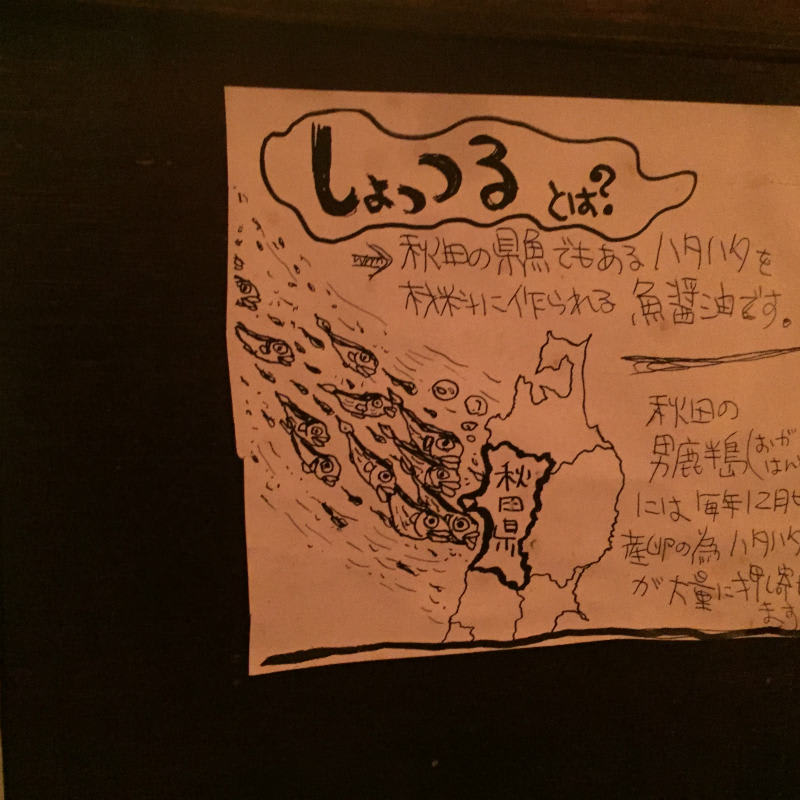 しょっつる とは?
⇒ 秋田の県魚でもある ハタハタを
材料に作られる 魚醤油です。
秋田の
男鹿半島(おが
はん
には 毎年12月
産卵の為 ハタハタ
が大量に押し寄せ
ます
秋田県